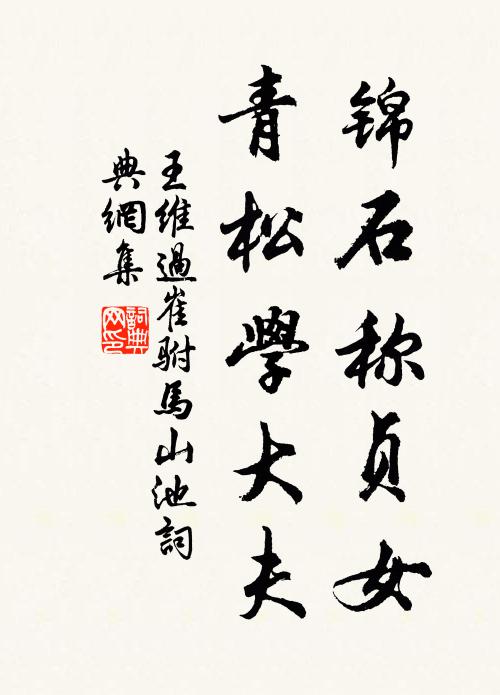 锦石称贞女
青松學大夫
王維過崔駙馬山池詞
典網集
詞典
网印